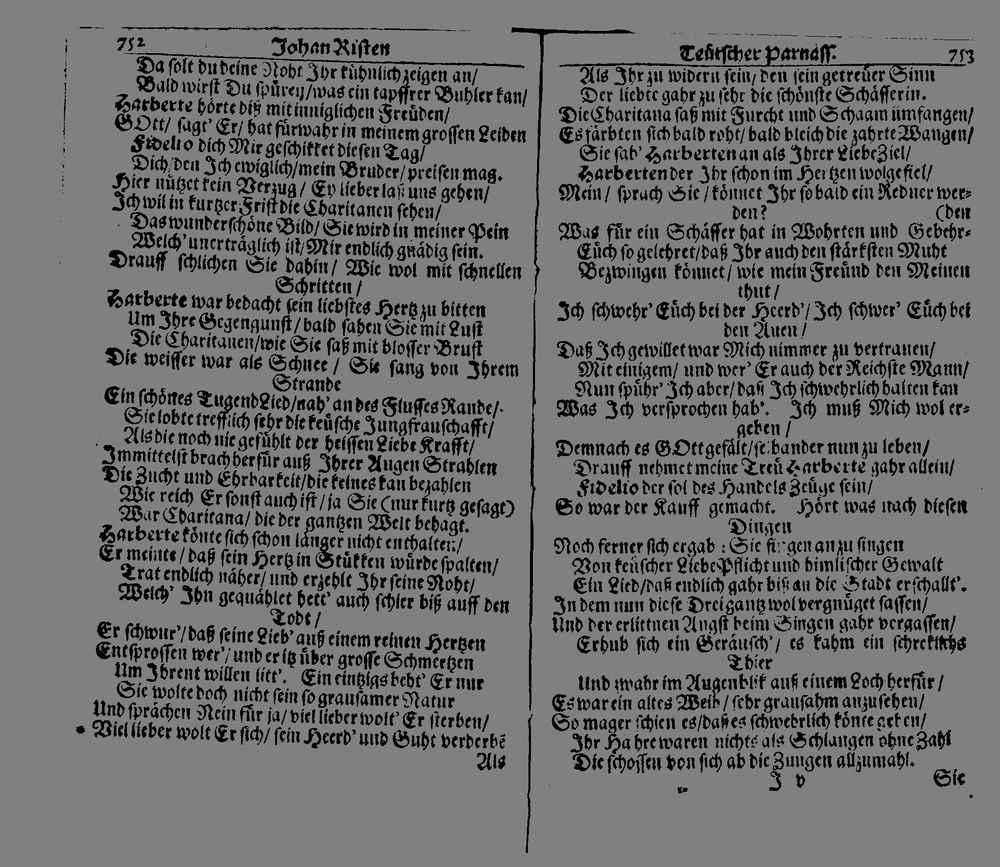 752 Johan Risten
Da solt du deine Noht Ihr kühnlich zeigen an/
Bald wirst Du spüren/was ein tapffrer Buhler kan/
Harberte hörte diß mit inniglichen Freüden/
GOtt/ sagt' Er/ hat fürwahr in meinem grossen Leiden
Fidelio dich Mir geschikket diesen Tag/
Dich/den Ich ewiglich/mein Bruder/preisen mag.
Hier nützet kein Verzug/ Ey lieber laß uns gehen/
Ich wil in kurtzer Frist die Charitanen sehen/
Das wunderschöne Bild/ Sie wird in meiner Pein
Welch' unerträglich ist/Mir endlich gnädig sein.
Drauff schlichen Sie dahin/ Wie wol mit schnellen
Schritten/
Harberte war bedacht sein liebstes Hertz zu bitten
Um Ihre Gegengunst/bald sahen Sie mit Lust
Die Charitanen/wie Sie saß mit blosser Brust
Die weisser war als Schnee/ Sie sang von Ihrem
Strande
Ein schönes TugendLied/nah' an des Flusses Rande/
Sie lobte trefflich sehr die keüsche Jungfrauschafft/
Als die noch nie gefühlt der heissen Liebe Krafft/
Immittelst brach herfür auß Ihrer Augen Strahlen
Die Zucht und Ehrbarkeit/die keines kan bezahlen
Wie reich Er sonst auch ist/ ja Sie (nur kurtz gesagt)
War Charitana/ die der gantzen Welt behagt.
Harberte könte sich schon länger nicht enthalten/
Er meinte/ daß sein Hertz in Stükken würde spalten/
Trat endlich näher/ und erzehlt Ihr seine Noht/
Welch' Ihn gequählet hett' auch schier biß auff den
Todt/
Er schwur'/daß seine Lieb' auß einem reinen Hertzen
Entsprossen wer'/ und er itz über grosse Schmertzen
Um Ihrent willen litt'. Ein eintzigs beht' Er nur
Sie wolte doch nicht sein so grausamer Natur
Und sprächen Nein für ja/ viel lieber wolt' Er sterben/
Viel lieber wolt Er sich/ sein Heerd' und Guht verderbẽ
Als
Teütscher Parnass. 753
Als Ihr zu widern sein/ den sein getreüer Sinn
Der liebte gahr zu sehr die schönste Schäfferin.
Die Charitana saß mit Furcht und Schaam ümfangen/
Es färbten sich bald roht/ bald bleich die zahrte Wangen/
Sie sah' Harberten an als Ihrer Liebe Ziel/
Harberten der Ihr schon im Hertzen wolgefiel/
Mein/ sprach Sie/ könnet Ihr so bald ein Redner wer-
den? (den
Was für ein Schäffer hat in Wohrten und Gebehr-
Eüch so gelehret/daß Ihr auch den stärksten Muht
Bezwingen könnet/ wie mein Freünd den Meinen
thut/
Ich schwehr' Eüch bei der Heerd'/ Ich schwer' Eüch bei
den Auen/
Daß Ich gewillet war Mich nimmer zu vertrauen/
Mit einigem/ und wer' Er auch der Reichste Mann/
Nun spühr' Ich aber/ daß Ich schwehrlich halten kan
Was Ich versprochen hab'. Ich muß Mich wol er-
geben/
Demnach es GOtt gefält/selbander nun zu leben/
Drauff nehmet meine Treü Harberte gahr allein/
Fidelio der sol des Handels Zeüge sein/
So war der Kauff gemacht. Hört was nach diesen
Dingen
Noch ferner sich ergab: Sie fingen an zu singen
Von keüscher Liebe Pflicht und himlischer Gewalt
Ein Lied/daß endlich gahr biß an die Stadt erschallt'.
In dem nun diese Drei gantz wol vergnüget sassen/
Und der erlittnen Angst beim Singen gahr vergassen/
Erhub sich ein Geräusch'/ es kahm ein schreklichs
Thier
Und zwahr im Augenblik auß einem Loch herfür/
Es war ein altes Weib/ sehr grausahm anzusehen/
So mager schien es/ daß es schwehrlich könte gehen/
Ihr Hahre waren nichts als Schlangen ohne Zahl
Die schossen von sich ab die Zungen allzumahl.
J v Sie